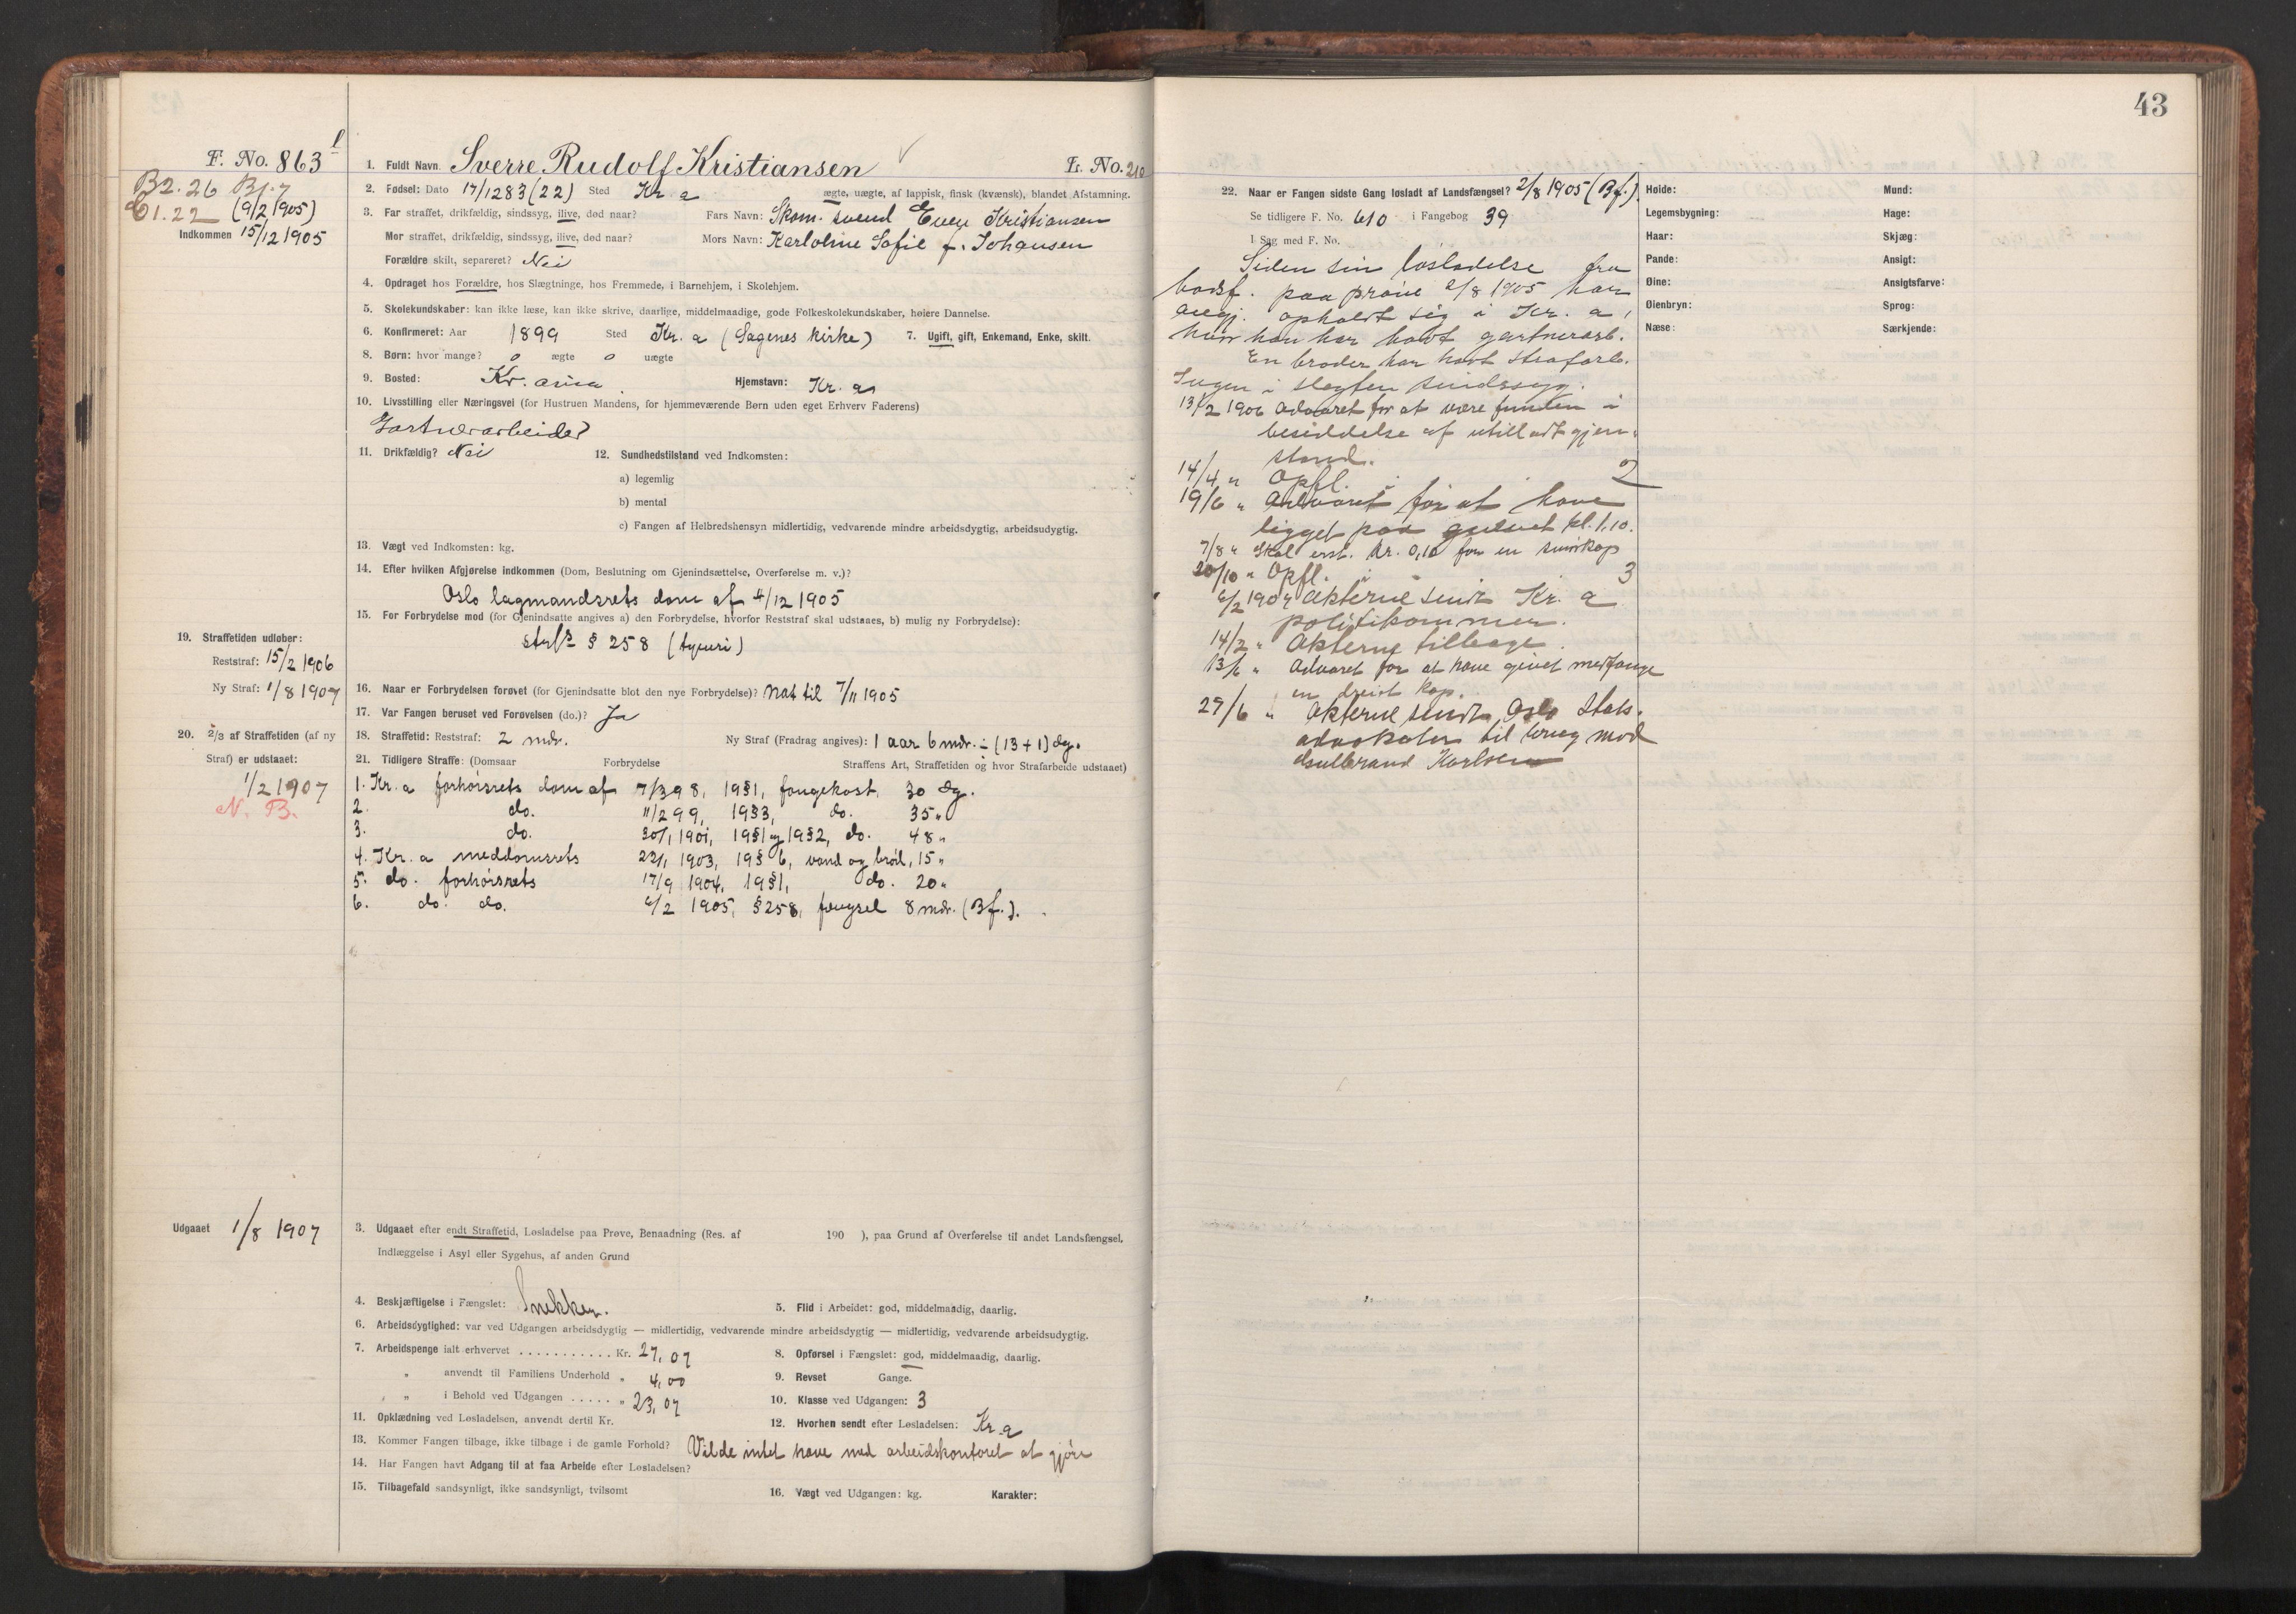 F. No. 863
B2.26 B1.7
C1.22 (9/2 1905)
Indkommen 15/12 1905
1. Fuldt Navn Sverre Rudolf Kristiansen L. No. 210
2. Fødsel: Dato 17/12 83 (22) Sted Kr. a ægte, uægte, af lappisk, finsk (kvænsk), blandet Afstamning.
3. Far straffet, drikfældig, sindssyg, ilive, død naar? Fars Navn: Skom. svend Kristiansen
Mor straffet, drikfældig, sindssyg, ilive, død naar? Mors Navn: Karloline Sofie f. Johansen
Forældre skilt, separeret? Nei
4. Opdraget hos Forældre, hos Slægtninge, hos Fremmede, i Barnehjem, i Skolehjem.
5. Skolekundskaber: kan ikke læse, kan ikke skrive, daarlige, middelmaadige, gode Folkeskolekundskaber, høiere Dannelse.
6. Konfirmeret: Aar 1899 Sted Kr. a (Sagenes kirke) 7. Ugift, gift, Enkemand, Enke, skilt.
8. Børn: hvor mange? 0 ægte 0 uægte
9. Bosted: Kr. ania Hjemstavn: Kr. a
10. Livsstilling eller Næringsvei (for Hustruen Mandens, for hjemmeværende Børn uden eget Erhverv Faderens)
Gartnerarbeider
11. Drikfældig? Nei 12. Sundhedstilstand ved Indkomsten:
a) legemlig
b) mental
c) Fangen af Helbredshensyn midlertidig, vedvarende mindre arbeidsdygtig, arbeidsudygtig.
13. Vægt ved Indkomsten: kg.
14. Efter hvilken Afgjørelse indkommen (Dom, Beslutning om Gjenindsættelse, Overførelse m. v.)?
Oslo lagmandsrets dom af 4/12 1905
15. For Forbrydelse mod (for Gjenindsatte angives a) den Forbrydelse, hvorfor Reststraf skal udstaaes, b) mulig ny Forbrydelse):
§ 258 (tyveri)
19. Straffetiden udløber:
Reststraf: 15/2 1906
Ny Straf: 1/8 1907
16. Naar er Forbrydelsen forøvet (for Gjenindsatte blot den nye Forbrydelse)? Nat til 7/11 1905
17. Var Fangen beruset ved Forøvelsen (do.)? Ja
20. 2/3 af Straffetiden (af ny
Straf) er udstaaet:
1/2 1907
N. B.
18. Straffetid: Reststraf: 2 mdr. Ny Straf (Fradrag angives): 1 aar 6 mdr. ÷ (13+1) dg.
21. Tidligere Straffe: (Domsaar Forbrydelse Straffens Art, Straffetiden og hvor Strafarbeide udstaaet)
1. Kr. a forhørsrets dom af 7/3 98, 19§1, fangekost, 30 dg.
2. do. 11/2 99, 19§3, do. 35 "
3. do. 30/1 1901, 19§1 og 19§2, do. 48 "
4. Kr. a meddomsrets 22/1 1903, 19§6, vand og brød, 15 "
5. do. forhørsrets 17/9 1904, 19§1, do. 20 "
6. do. do. 6/2 1905, §258, fængsel 8 mdr. (Bf.).
Udgaaet 1/8 1907
3. Udgaaet efter endt Straffetid, Løsladelse paa Prøve, Benaadning (Res. af 190 ), paa Grund af Overførelse til andet Landsfængsel,
Indlæggelse i Asyl eller Sygehus, af anden Grund
4. Beskjæftigelse i Fængslet: Snekker. 5. Flid i Arbeidet: god, middelmaadig, daarlig.
6. Arbeidsdygtighed: var ved Udgangen arbeidsdygtig — midlertidig, vedvarende mindre arbeidsdygtig — midlertidig, vedvarende arbeidsudygtig.
7. Arbeidspenge ialt erhvervet . . . . . . . . . . . Kr. 27,07 8. Opførsel i Fængslet: god, middelmaadig, daarlig.
" anvendt til Familiens Underhold " 4,00 9. Revset Gange.
" " i Behold ved Udgangen . . . . . " 23,07 10. Klasse ved Udgangen: 3
11. Opklædning ved Løsladelsen, anvendt dertil Kr. 12. Hvorhen sendt efter Løsladelsen: Kr. a
13. Kommer Fangen tilbage, ikke tilbage i de gamle Forhold? Vilde intet have med arbeidskontoret at gjøre
14. Har Fangen havt Adgang til at faa Arbeide efter Løsladelsen?
15. Tilbagefald sandsynligt, ikke sandsynligt, tvilsomt 16. Vægt ved Udgangen: kg. Karakter:
43
22. Naar er Fangen sidste Gang løsladt af Landsfængsel? 2/8 1905 (Bf.)
Se tidligere F. No. 610 i Fangebog 39
I Sag med F. No.
Siden sin løsladelse fra
bodsf. paa prøve 2/8 1905 har
opholdt sig i Kr. a,
hvor han har havt gartnerarb.
En broder har havt strafarb.
Ingen i slegten sindssyg.
13/2 1906 Advaret for at være funden i
besiddelse af utilladt gjen-
stand.
14/4 " Opfl. i 2
19/6 " Advaret for at have
ligget paa gulvet kl. 1.10.
7/8 " Skal erst. kr. 0,10 for en
20/10 " Opfl. i 3
6/2 1907 Akterne sendt Kr. a
politikammer.
14/2 " Akterne tilbage.
13/6 " Advaret for at have givet medfange
en kop.
27/6 " Akterne sendt Oslo Stats-
advokater til brug mod
Karlsen
Høide: Mund:
Legemsbygning: Hage:
Haar: Skjæg:
Pande: Ansigt:
Øine: Ansigtsfarve:
Øienbryn: Sprog:
Næse: Særkjende: